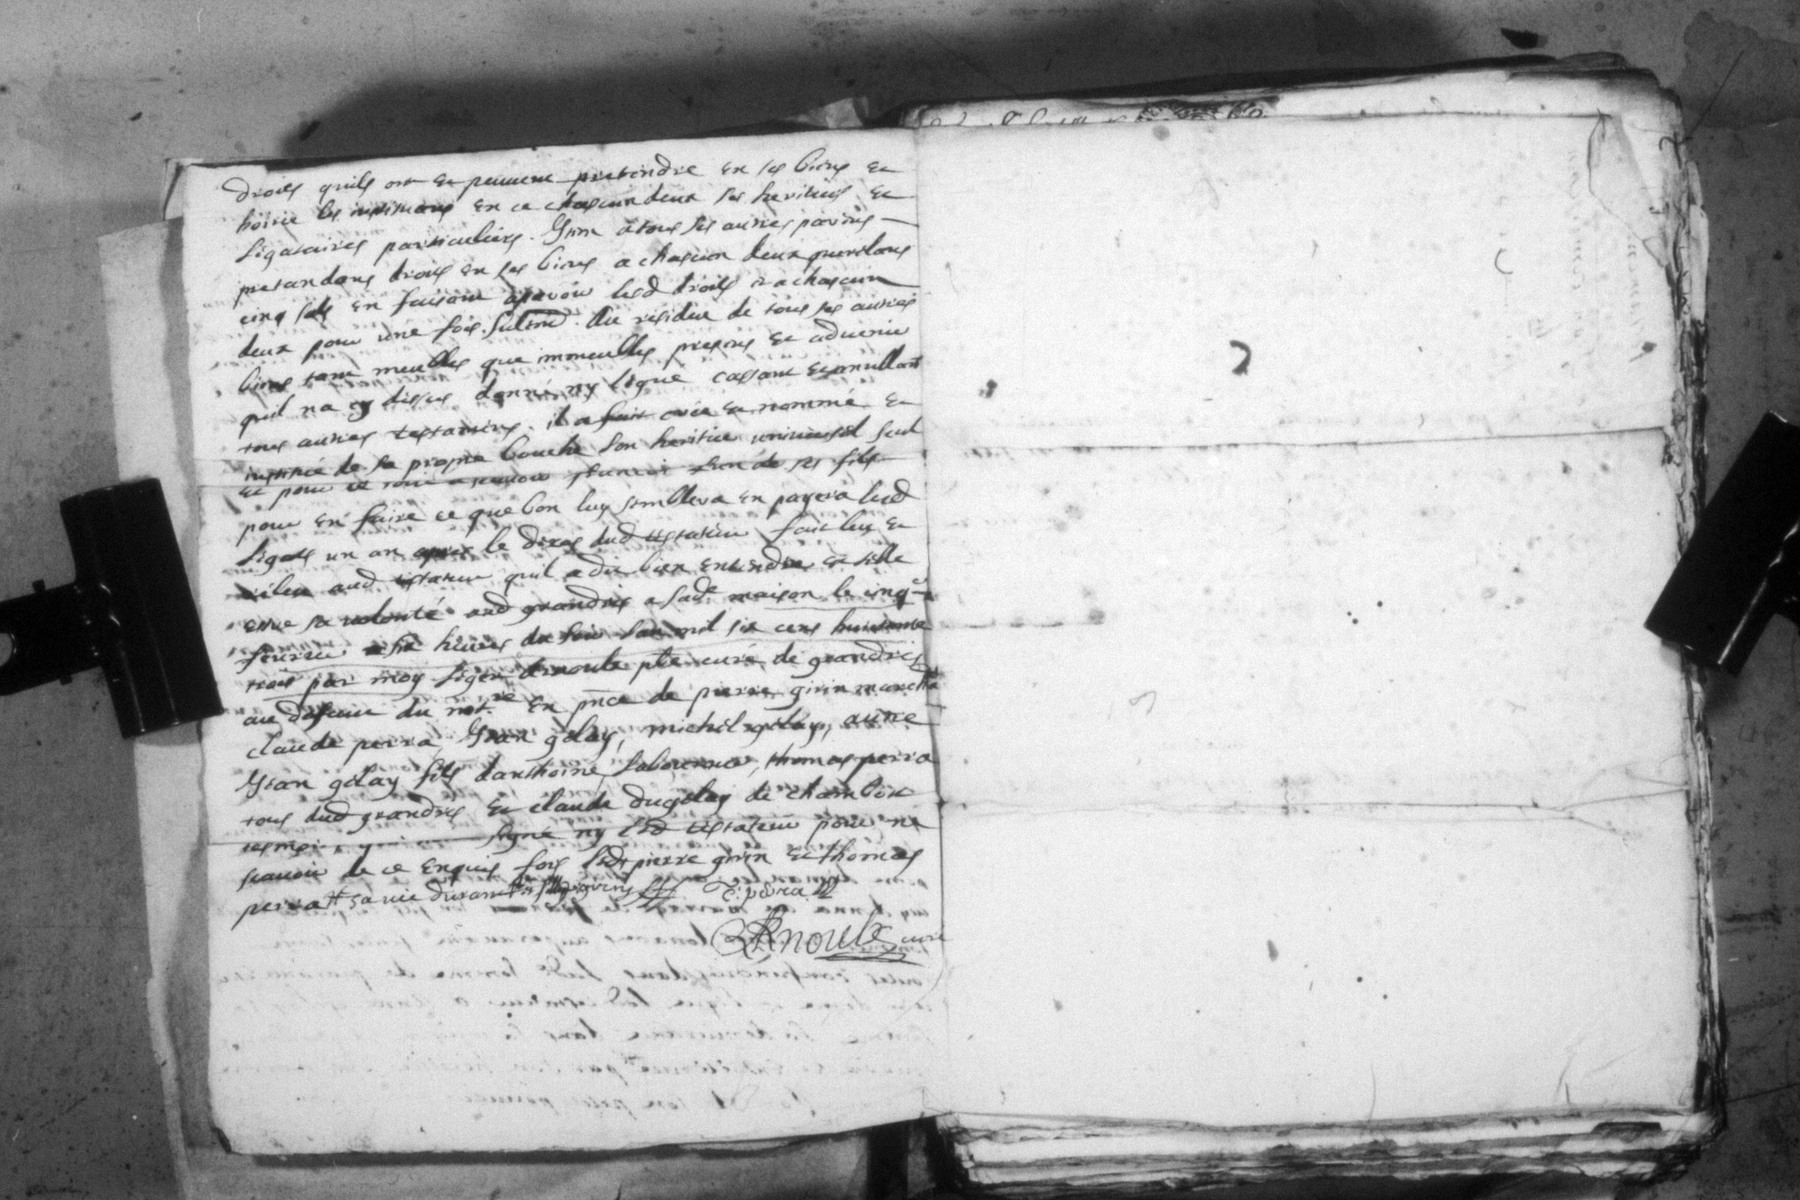 droits quils ont et peuvent pretendre en ses biens et
hoirie les instituant en ce chascun deux ses heritiers et
Legataires particuliers. Item a tous ses autres parens
pretandans droits en ses biens a chascun deux
cinq sols en faisant apavoir lesd droits et a chascun
deux pour une fois sulemt. Au residue de tous ses autres
biens tant meubles que immeubles presens et advenir
quil na cy dessus donné ny legué cassant et annullant
tous autres testamens. il a fait crée et nommé et
institué de sa propre bouche son heritier universel seul
et pour le tout a scavoir lun de ses fils
pour en faire ce que bon luy semblera en payera lesd
Legats un an apres le deces dud testateur fait leu et
releu aud testateur quil a dit bien entendre et telle
estre sa volonté aud grandris a sade maison le cinqe
feurier heures du soir lan mil six cens huictante
trois par moy Leger Arnoulx ptre curé de grandris
au defaut du notre en pnce de pierre girin marchd
claude perra, Jean gelay, michel gelay, autre
Jean gelay fils danthoine Laboureur, thomas perra
tous dud grandris et claude dugelay de chambost
signé ny led testateur pour ne
scavoir de ce enquis fors led pierre girin et thomas
perra # sa vie durant girin T: perra
Arnoulx curé